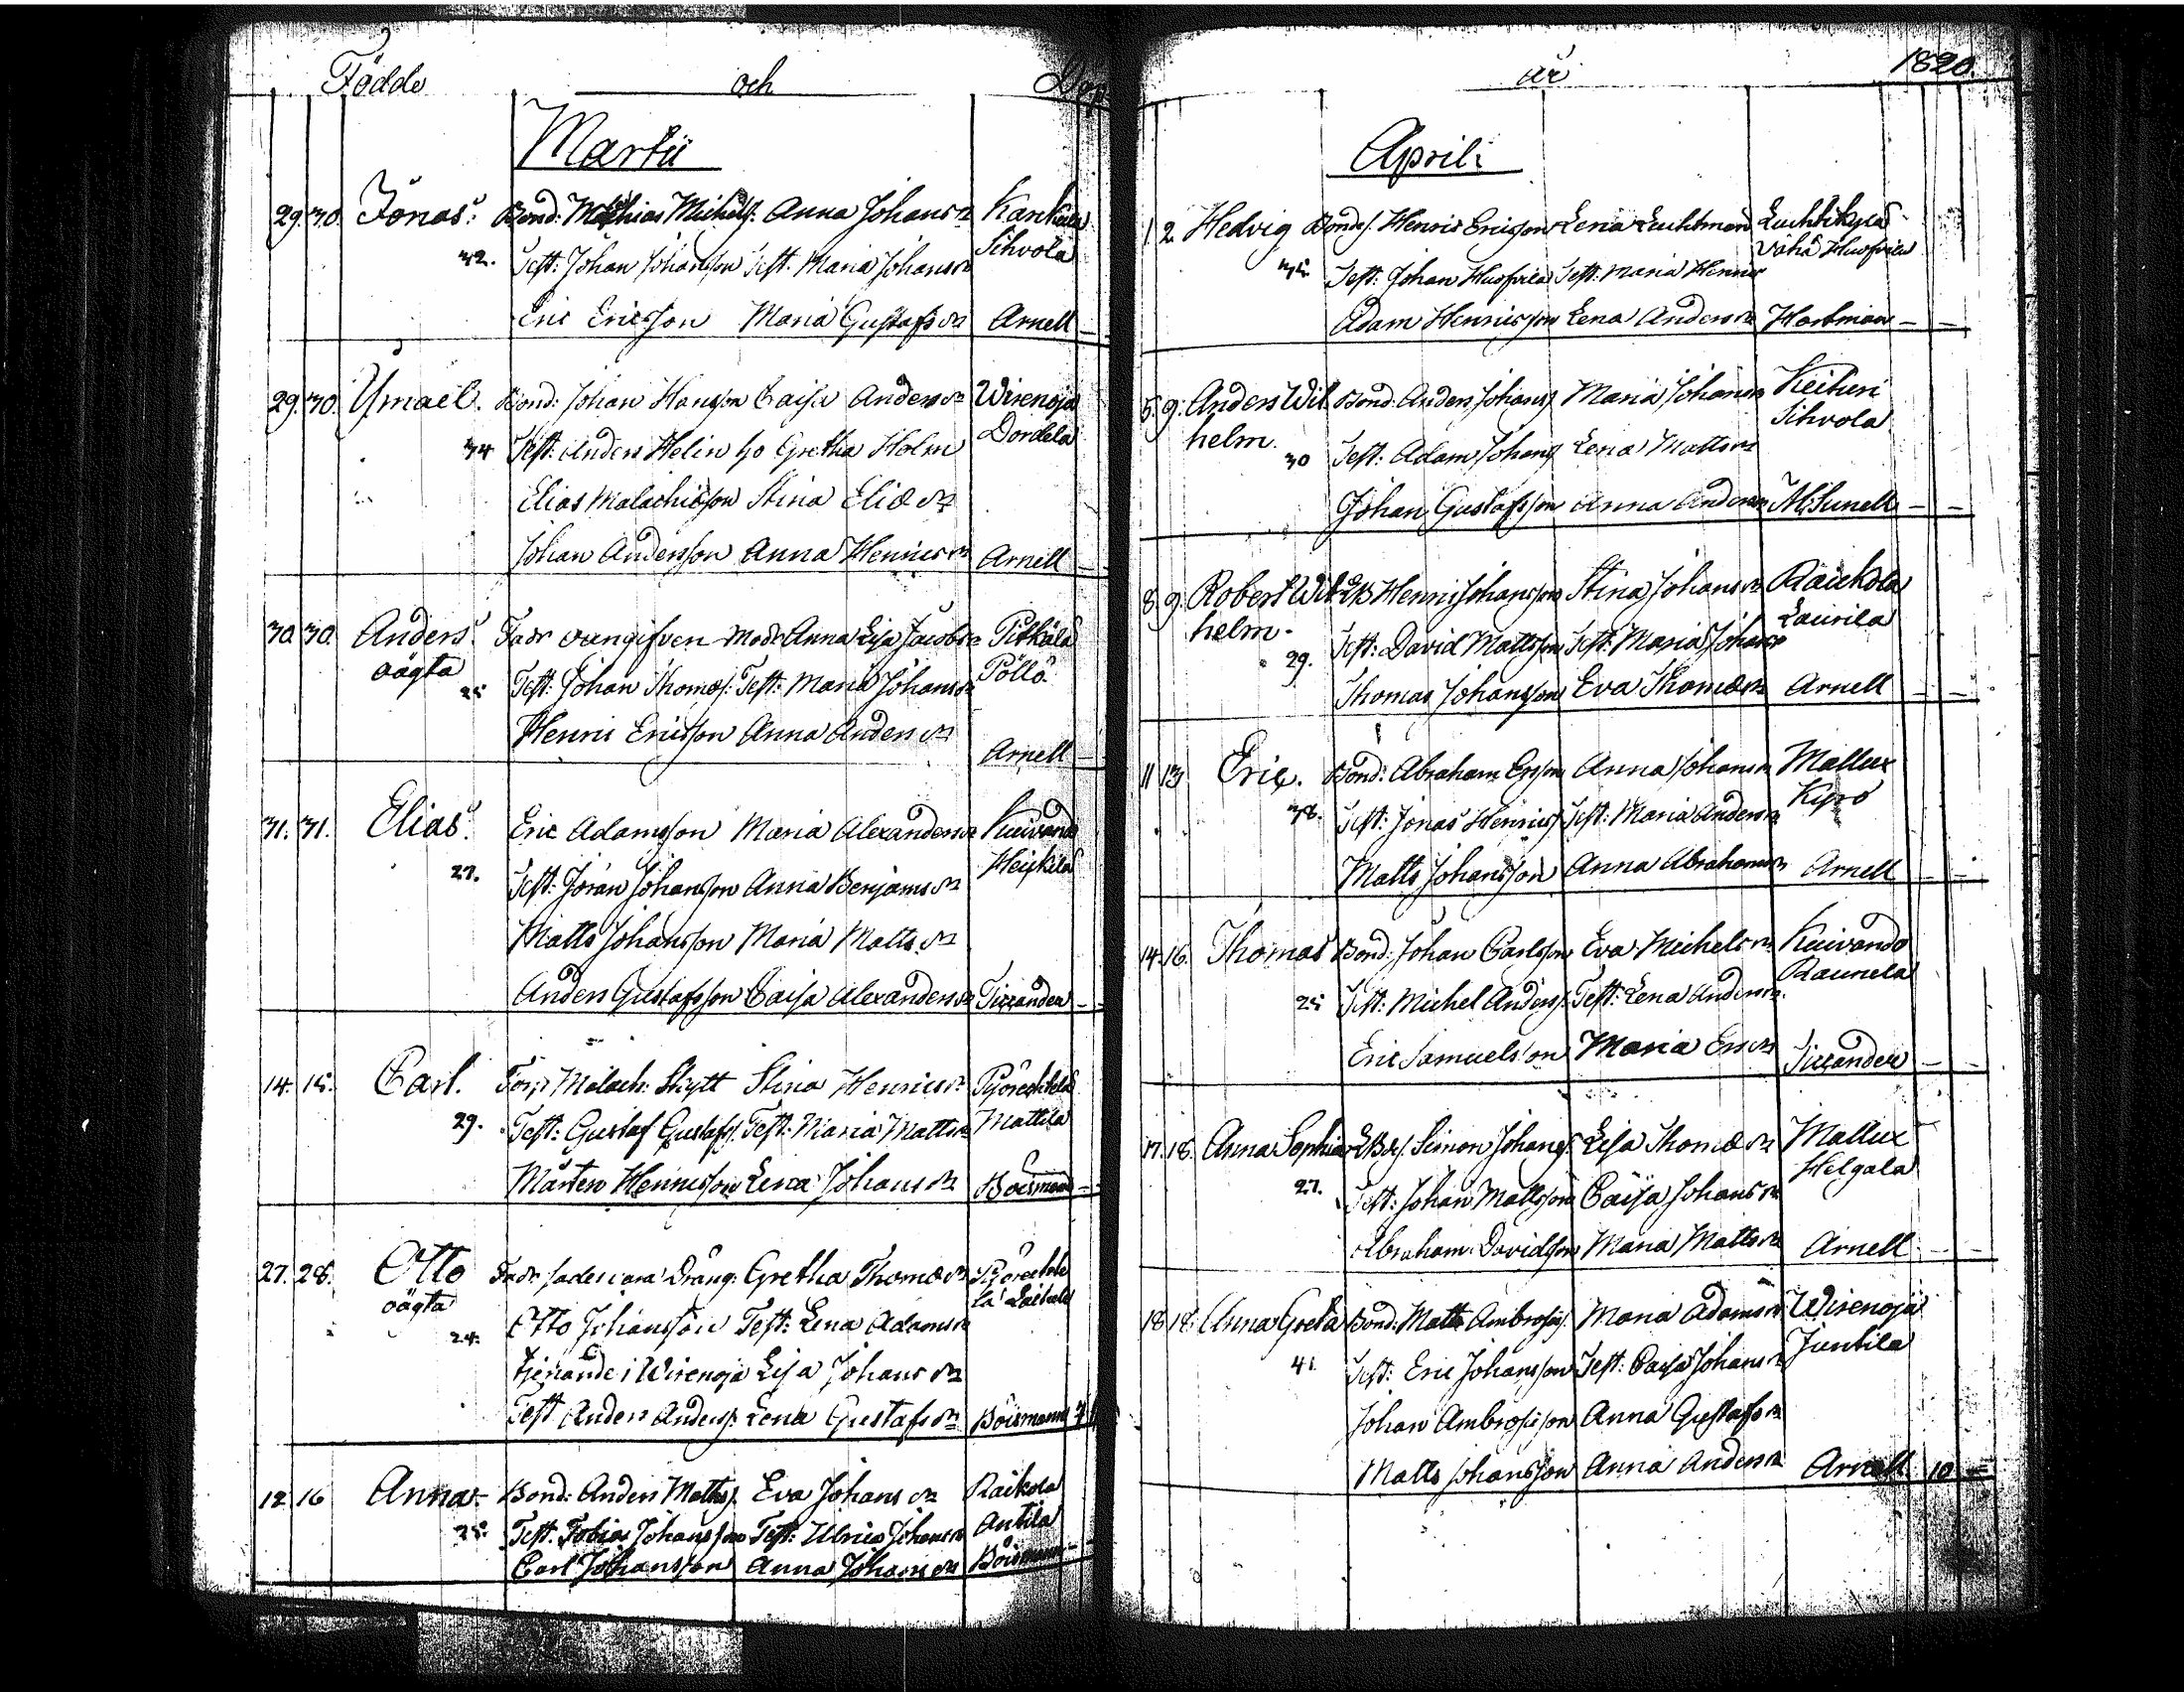 Födde och Döp
Martii
29. 30. Jonas. Bond: Mathias Michelss: Anna Johansdr Kankare
32. Test: Johan Johansson Test. Maria Johansdr Sihvola
Eric Ericsson Maria Gustafsdr Arnell
29. 30. Ismael. Bond: Johan Hansson Caisa Andersdr Wirenoja
34 Test: Anders Helin ho Gretha Holm Dordela
Elias Malachiasson Stina Eliædr
Johan Andersson Anna Henricsdr Arnell
30. 30. Anders. Fadr oangifven Modr Anna Lisa Jacobsdr Pitkälä
oägta 25 Test: Johan Thomæs: Test: Maria Johansdr Pöllö
Henric Ericsson Anna Andersdr
Arnell
31. 31. Elias. Eric Adamsson Maria Alexandersdr Kuivando
27. Test: Jöran Johansson Anna Benjamsdr Heikkilä
Matts Johansson Maria Mattsdr
Anders Gustafsson Caisa Alexandersdr Tirranden
14. 15. Carl. Torp Malach: Skytt Stina Henricsdr
29. Test: Gustaf Gustafss. Test: Maria Mattsdr Mattila
Mårten Henricsson Lena Johansdr Boisman
27. 28. Otto Fadr Drång: Gretha Thomædr
oägta
24. Otto Johansson Test: Lena Adamsdr
tjenande i Wirenoja Lisa Johansdr
Test Anders Anderss: Lena Gustafsdr Boismann
12 16 Anna Bond: Anders Mattss. Eva Johansdr Raikola
25. Test. Tobias Johansson Test: Ulrica Johansdr Antila
Carl Johansson Anna Johansdr Boisman
år 1820.
April:
1 2 Hedvig Bonds. Henric Ericsson Lena Luchtman Luchtikylä
35. Test: Johan Husfvila Test: Maria Henricsdr Vähä Husfvila
Adam Henricsson Lena Andersdr Hartman
5. 9. Anders Wil Bond. Anders Johanss Maria Johansdr Keikeri
helm. Sihvola
30 Test: Adam Johanss Lena Mattsdr
Johan Gustafsson Anna Andersdr M:Sunell
8. 9. Robert Wil LB Henric Johansson Stina Johansdr Raickola
helm. Laurila
29. Test: David Mattsson Test: Maria Johansdr
Thomas Johansson Eva Thomædr Arnell
11 13 Eric. Bond: Abraham Ersson Anna Johansdr Mallux
38. Test: Jonas Henricss Test: Maria Andersdr Kyrö
Matts Johansson Anna Abrahamsdr Arnell
14. 16. Thomas Bond: Johan Carlsson Eva Michelsdr Kuivando
Raunela
25 Test: Michel Anderss. Test: Lena Andersdr
Eric Samuelsson Maria Ersdr Tirranden
17. 18. Anna Sophia LBds. Simon Johanss. Lisa Thomædr Mallux
Helgala
27. Test: Johan Mattsson Caisa Johansdr
Abraham Davidsson Maria Mattsdr Arnell
18 18. Anna Greta Bond: Matts Ambrosiss. Maria Adamsdr Wirenoja
41. Test: Eric Johansson Test: Caisa Johansdr Juntila
Johan Ambrosisson Anna Gustafsdr
Matts Johansson Anna Andersdr Arnell 10